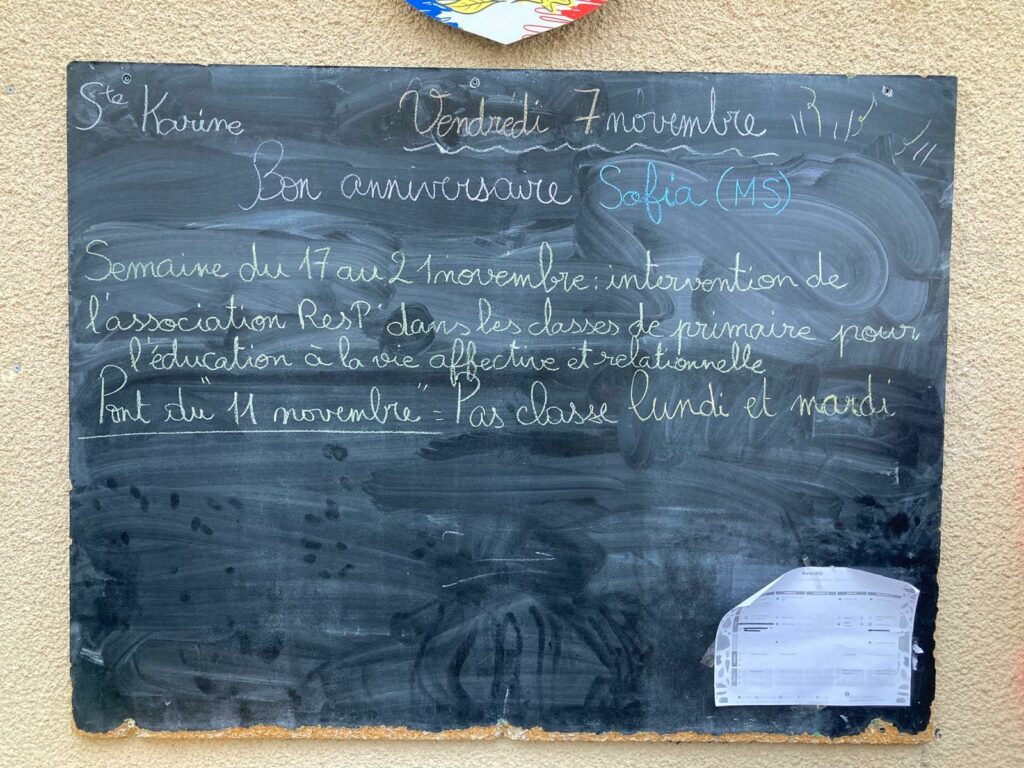 Ste Karine
Vendredi 7 novembre
Bon anniversaire Sofia (MS)
Semaine du 17 au 21 novembre : intervention de
l'association ResP' dans les classes de primaire pour
l'éducation à la vie affective et relationnelle
Pont du "11 novembre" = Pas classe lundi et mardi